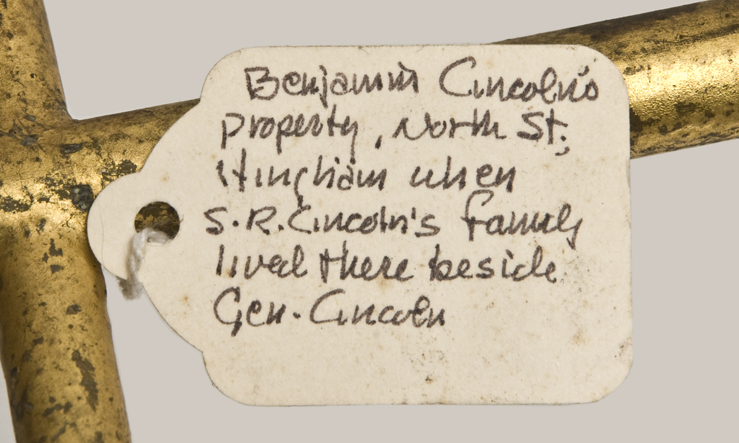 Benjamin Lincoln's
property, North St.,
Hingham when
S.R. Lincoln's family
lived there beside
Gen. Lincoln